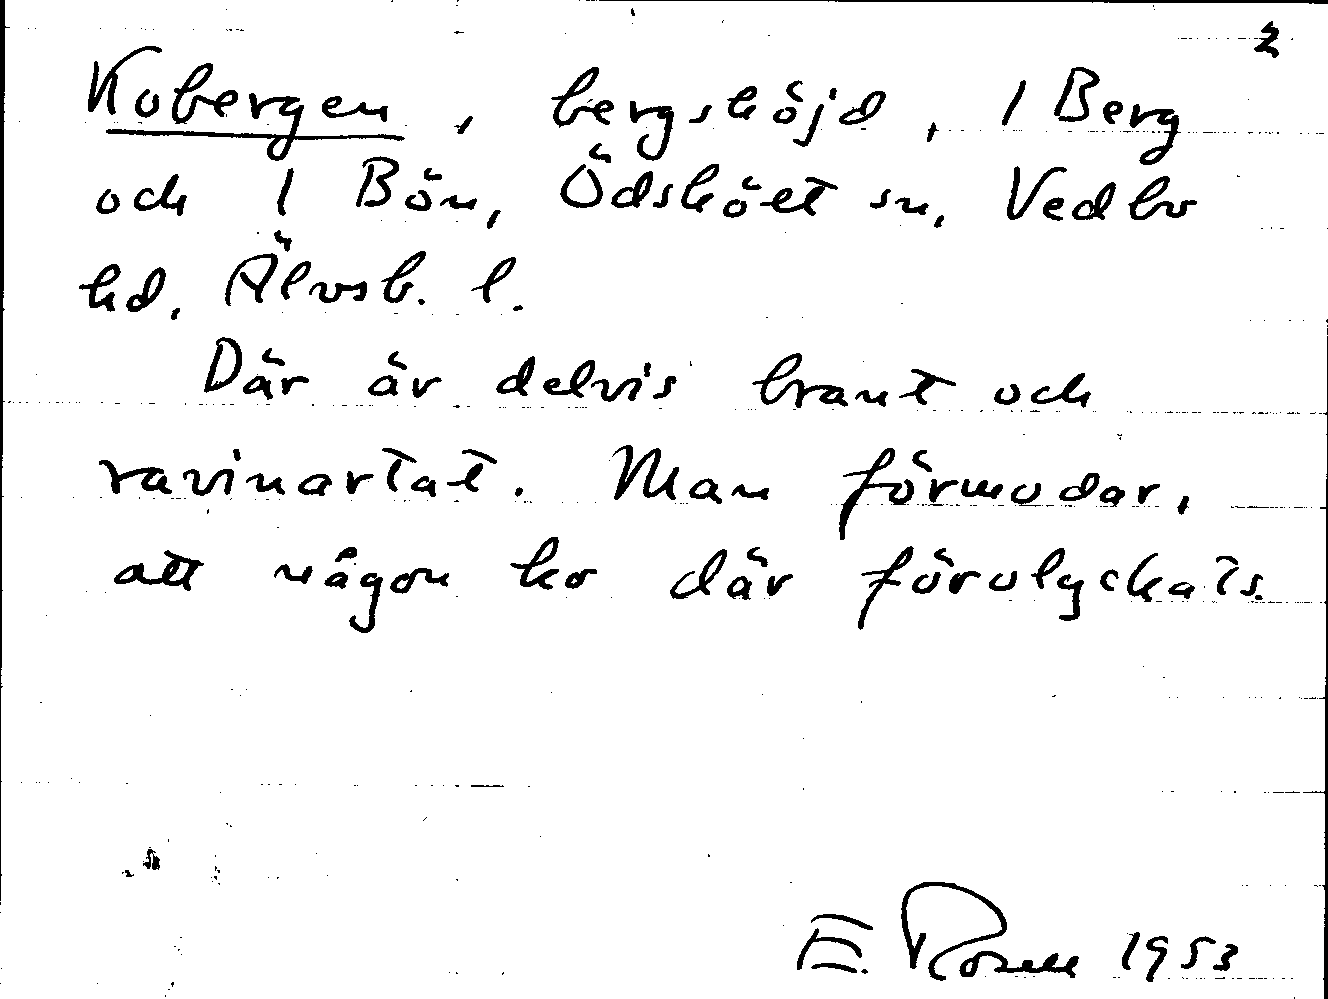 2
Kobergen, bergshöjd, 1 Berg
och 1 Bön, Ödsköet sn, Vedbo
hd. Älvsb. l.
Där är delvis brant och
ravinartat. Man förmodar,
att någon ko där förolyckats.
E. Rosell 1953